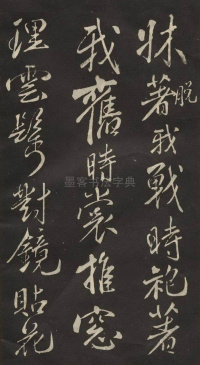 牀著脱我戰時袍著
我舊時裳推窓
理雲鬢對鏡貼花
墨客书法字典